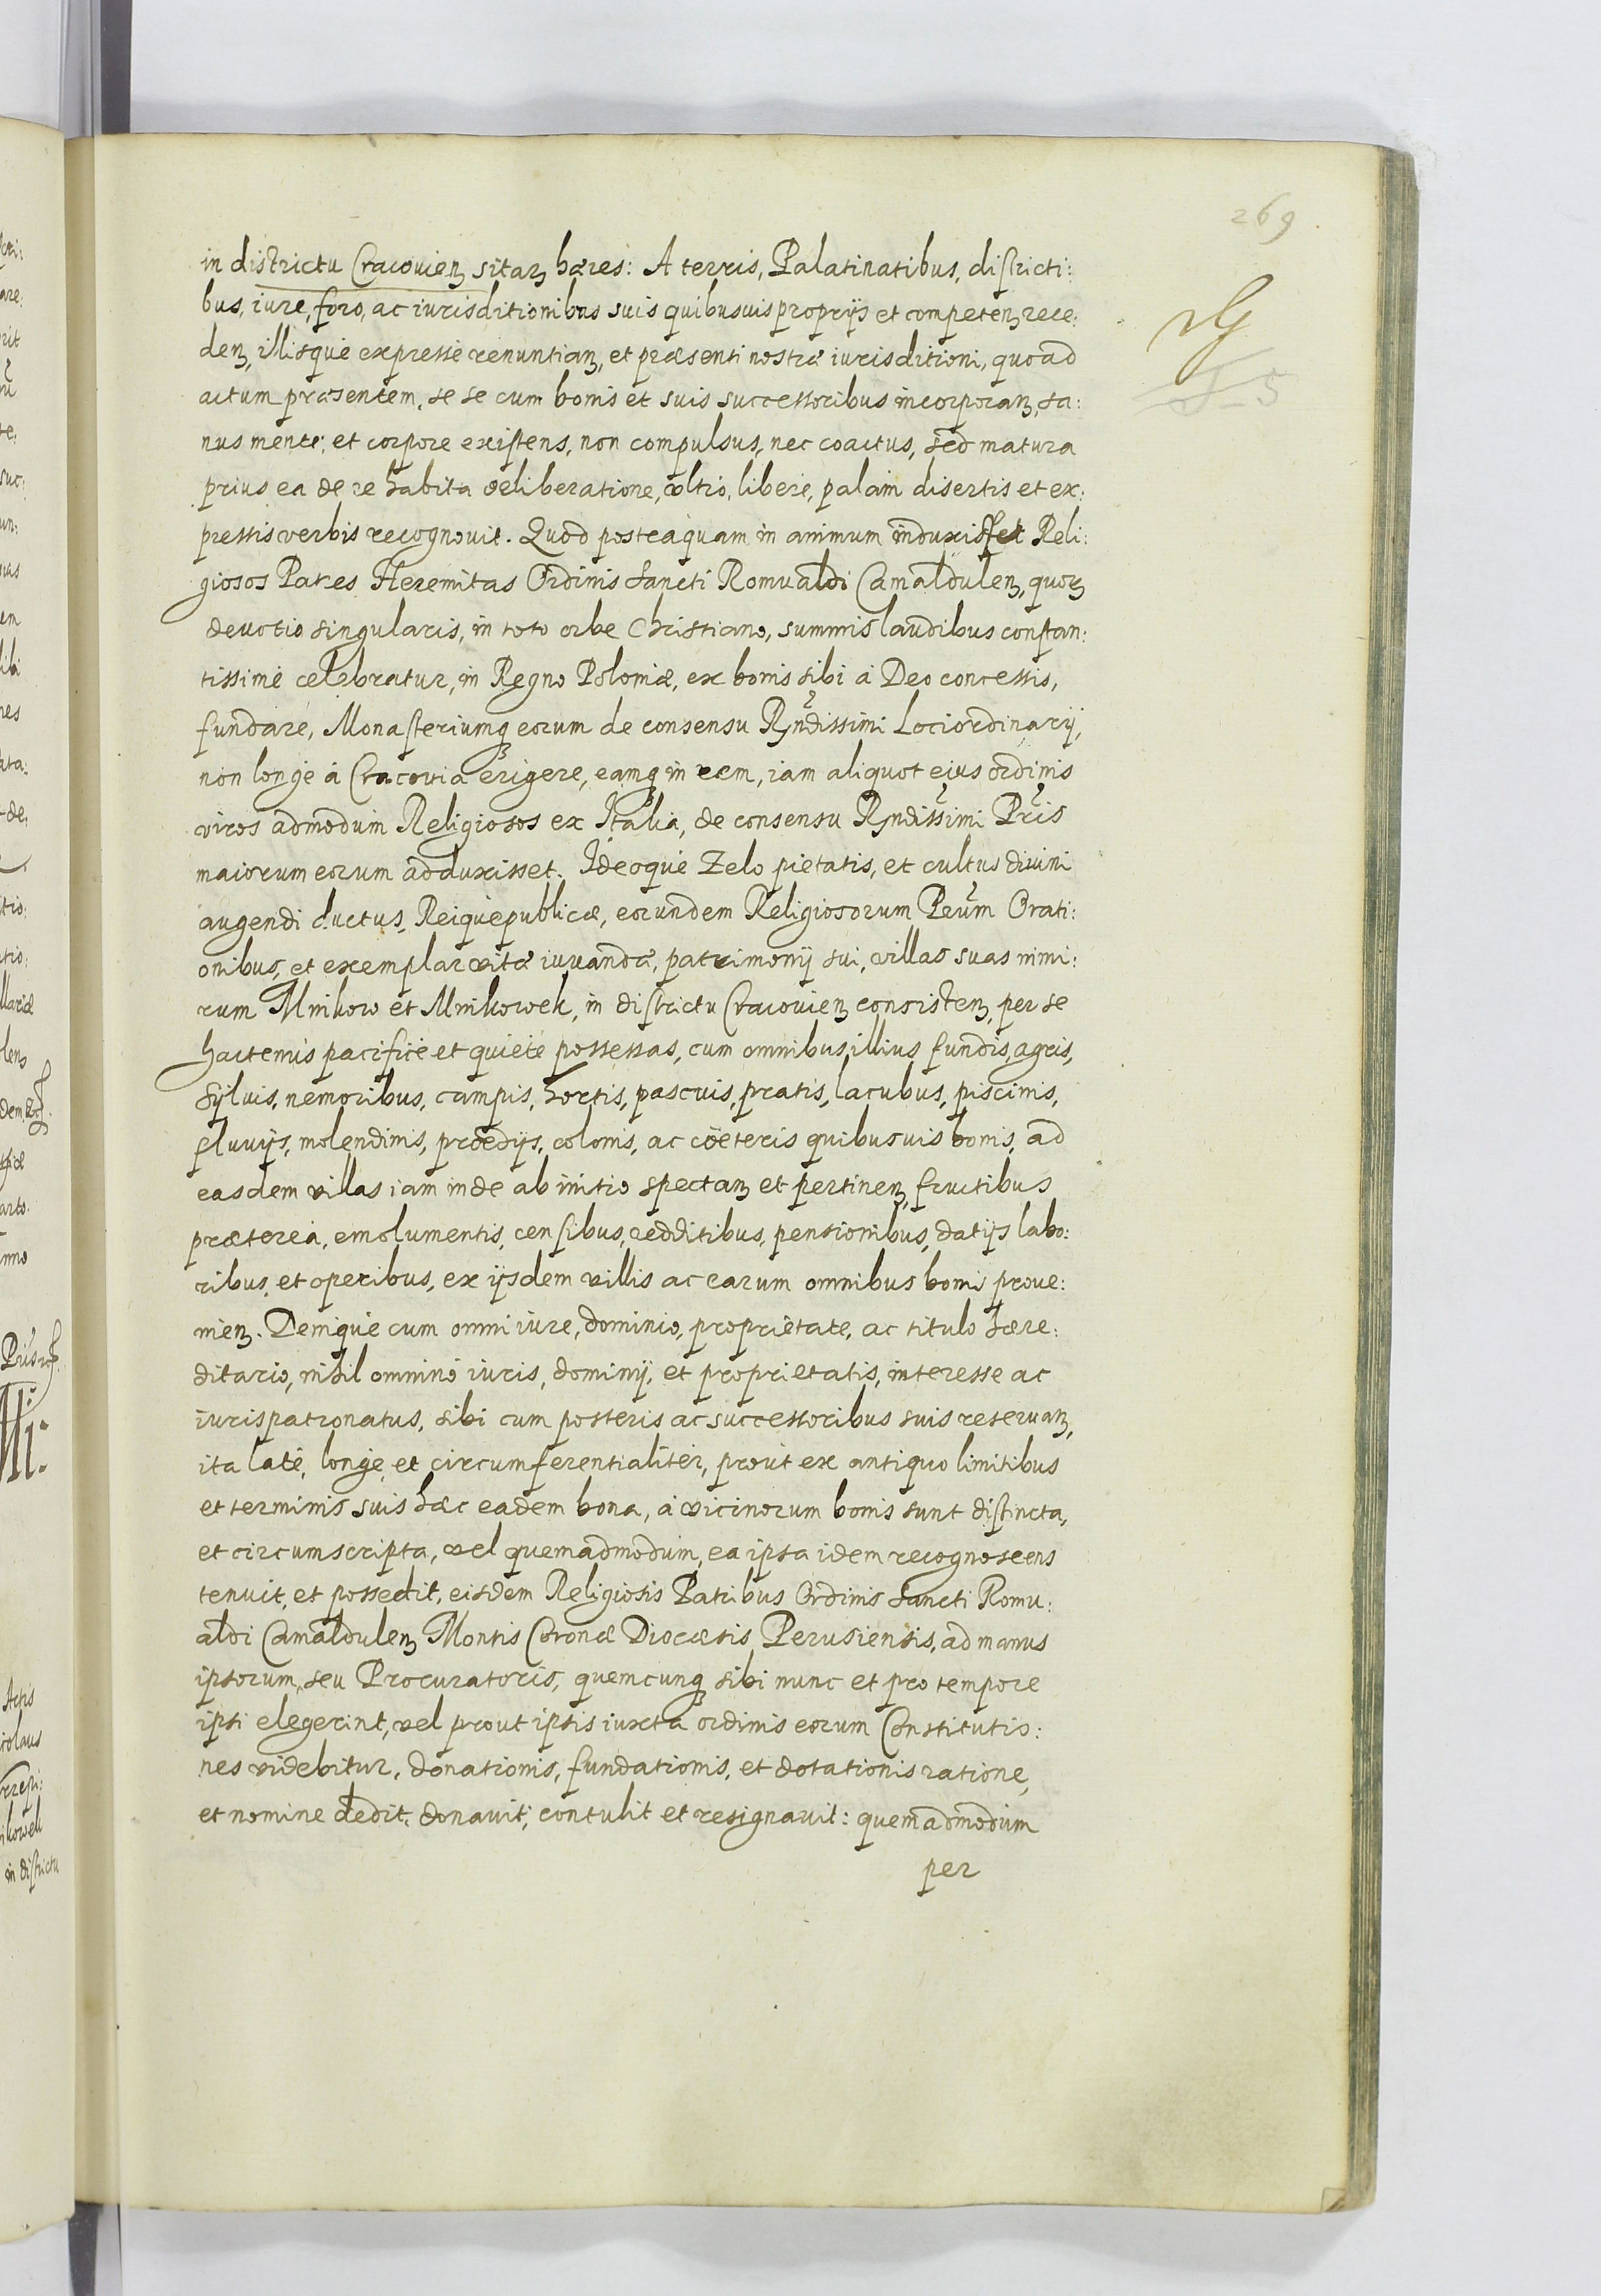 269
in districtu Cracovien̄ sitarꝫ hæres: A terris, Palatinatibus, districti:
bus, iure, foro, ac iurisditionibus suis quibusuis proprijs et competenꝫ rece:
denꝫ, illisque expresse renuntianꝫ, et præsenti nostræ iurisditioni, quoad
actum præsentem, se se cum bonis et suis successoribus incorporanꝫ, sa:
nus mente, et corpore existens, non compulsus, nec coactus, sed matura
prius ea de re habita deliberatione, vltro, libere, palam disertis et ex:
pressis verbis recognovit. Quod posteaquam in animum induxisset Reli:
giosos Patres Heremitas Ordinis Sancti Romualdi Camaldulenꝫ, quorꝫ
devotio singularis, in toto orbe Christiano, summis laudibus constan:
tissimé celebratur, in Regno Poloniæ, ex bonis sibi á Deo concessis,
fundare, Monasteriumqꝫ eorum de consensu Rṇdissimi Lociordinarij,
non longe á Cracovia erigere, eamqꝫ in rem, iam aliquot eius ordinis
viros admodum Religiosos ex Italia, de consensu Rṇdissimi Pris
maiorum eorum adduxisset. Ideoque Zelo pietatis, et cultus divini
augendi ductus, Reiquepublicæ, eorundem Religiosorum Prum Orati:
onibus, et exemplar vitæ iuvandæ, patrimonij sui, villas suas nimi:
rum Mnikow et Mnikowek, in districtu Cracovienꝫ consistenꝫ, per se
hactenus pacificé et quieté possessas, cum omnibus illius fundis, agris,
sylvis, nemoribus, campis, hortis, pascuis, pratis, lacubus, piscinis,
fluvijs, molendinis, prædijs, colonis, ac cæteris quibusuis bonis, ad
easdem villas iam inde ab initio spectanꝫ et pertinenꝫ, fructibus
præterea, emolumentis, censibus, redditibus, pensionibus, datijs labo:
ribus, et operibus, ex ijsdem villis ac earum omnibus bonis prove:
nienꝫ. Denique cum omni iure, dominio, proprietate, ac titulo hære:
ditario, nihil omnino iuris, dominij, et proprietatis, interesse ac
iurispatronatus, sibi cum posteris ac successoribus suis reservanꝫ,
ita laté, longé, et circumferentialiter, prout ex antiquo limitibus
et terminis suis hæc eadem bona, á vicinorum bonis sunt distincta,
et circumscripta, vel quemadmodum, ea ipsa idem recognoscens
tenuit, et possedit, eisdem Religiosis Patribus Ordinis Sancti Romu:
aldi Camaldulenꝫ Montis Coronæ Diocæsis Perusiensis, ad manus
ipsorum, seu Procuratoris, quemcunqꝫ sibi nunc et pro tempore
ipsi elegerint, vel prout ipsis iuxta ordinis eorum Constitutio:
nes videbitur, donationis, fundationis, et dotationis ratione,
et nomine dedit, donavit, contulit et resignavit: quemadmodum
per